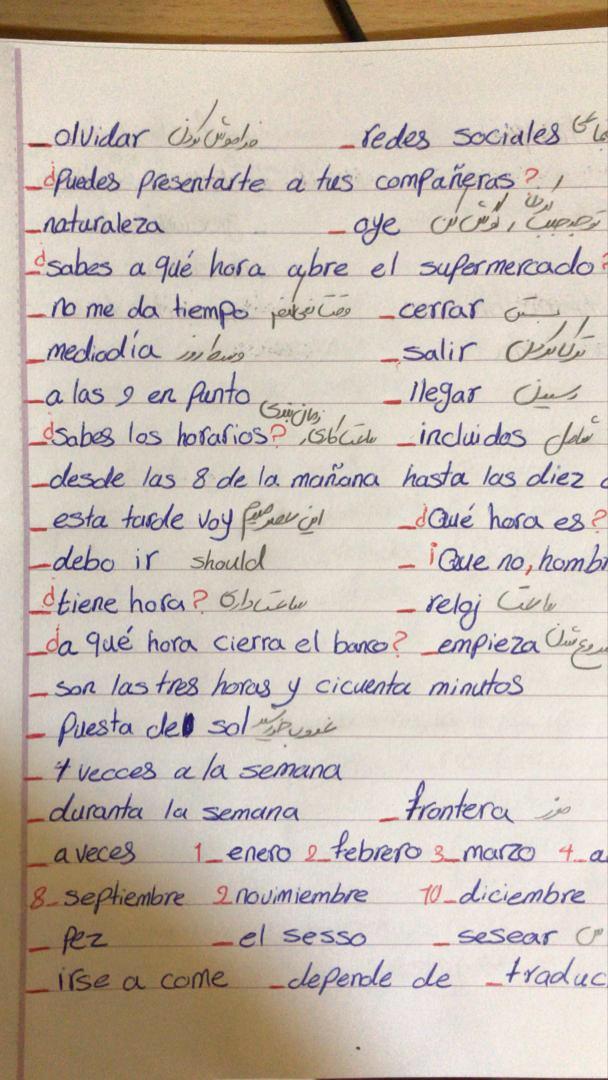 _olvidar فراموش کردن _redes sociales
_¿puedes presentarte a tus compañeras?
_naturaleza _oye گوش کن
_¿sabes a qué hora abre el supermercado?
_no me da tiempo وقت نمیکنم _cerrar بستن
_mediodía وسط روز _salir ترک کردن
_a las 9 en punto _llegar رسیدن
_¿sabes los horarios? ساعت کاری، زمان بندی _incluidos شامل
_desde las 8 de la mañana hasta las diez
_esta tarde voy این عصر میرم _¿Qué hora es?
_debo ir should _¡Que no, hombr
_¿tiene hora? ساعت داری _reloj ساعت
_¿a qué hora cierra el banco? _empieza شروع شدن
_son las tres horas y cicuenta minutos
_puesta del sol غروب خورشید
_1 vecces a la semana
_duranta la semana _frontera مرز
_a veces 1_enero 2_febrero 3_marzo 4_a
8_septiembre 9 novimiembre 10_diciembre
_pez _el sesso _sesear
_irse a come _depende de _traduc